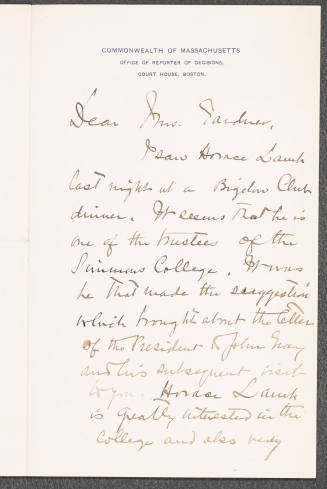 COMMONWEALTH OF MASSACHUSETTS
OFFICE OF REPORTER OF DECISIONS,
COURT HOUSE, BOSTON.
Dear Mrs. Gardner,
I saw Horace Lamb
last night at a Bigelow Club
dinner. It seems that he is
one of the trustees of the
Simmons College. It was
he that made the suggestion
which brought about the letter
of the President to John Gray
and his subsequent visit
to you. Horace Lamb
is greatly interested in the
College and also very